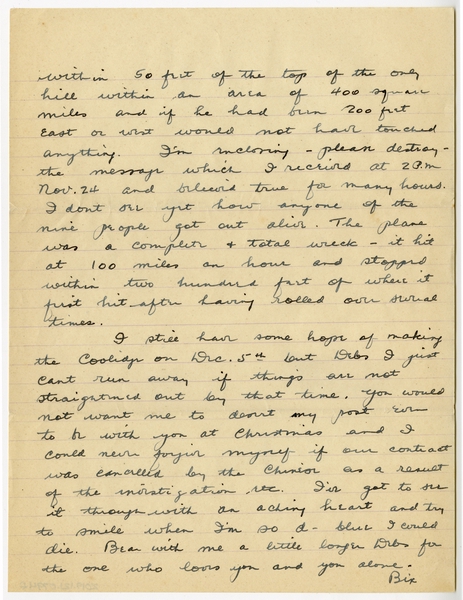 within 50 feet of the top of the only
hill within an area of 400 square
miles and if he had been 200 feet
East or west would not have touched
anything. I'm enclosing - please destroy -
the message which I received at 2 P.M
Nov. 24 and believed true for many hours.
I dont see yet how anyone of the
nine people got out alive. The plane
was a complete & total wreck - it hit
at 100 miles an hour and stopped
within two hundred feet of where it
first hit after having rolled over several
times.
I still have some hope of making
the Coolidge on Dec. 5th but Debs I just
cant run away if things are not
straightened out by that time. You would
not want me to desert my post even
to be with you at Christmas and I
could never forgive myself if our contract
was cancelled by the Chinese as a result
of the investigation, etc. I've got to see
it through with an aching heart and try
to smile when I'm so d- blue I could
die. Bear with me a little longer Debs for
the one who loves you and you alone.
Bix